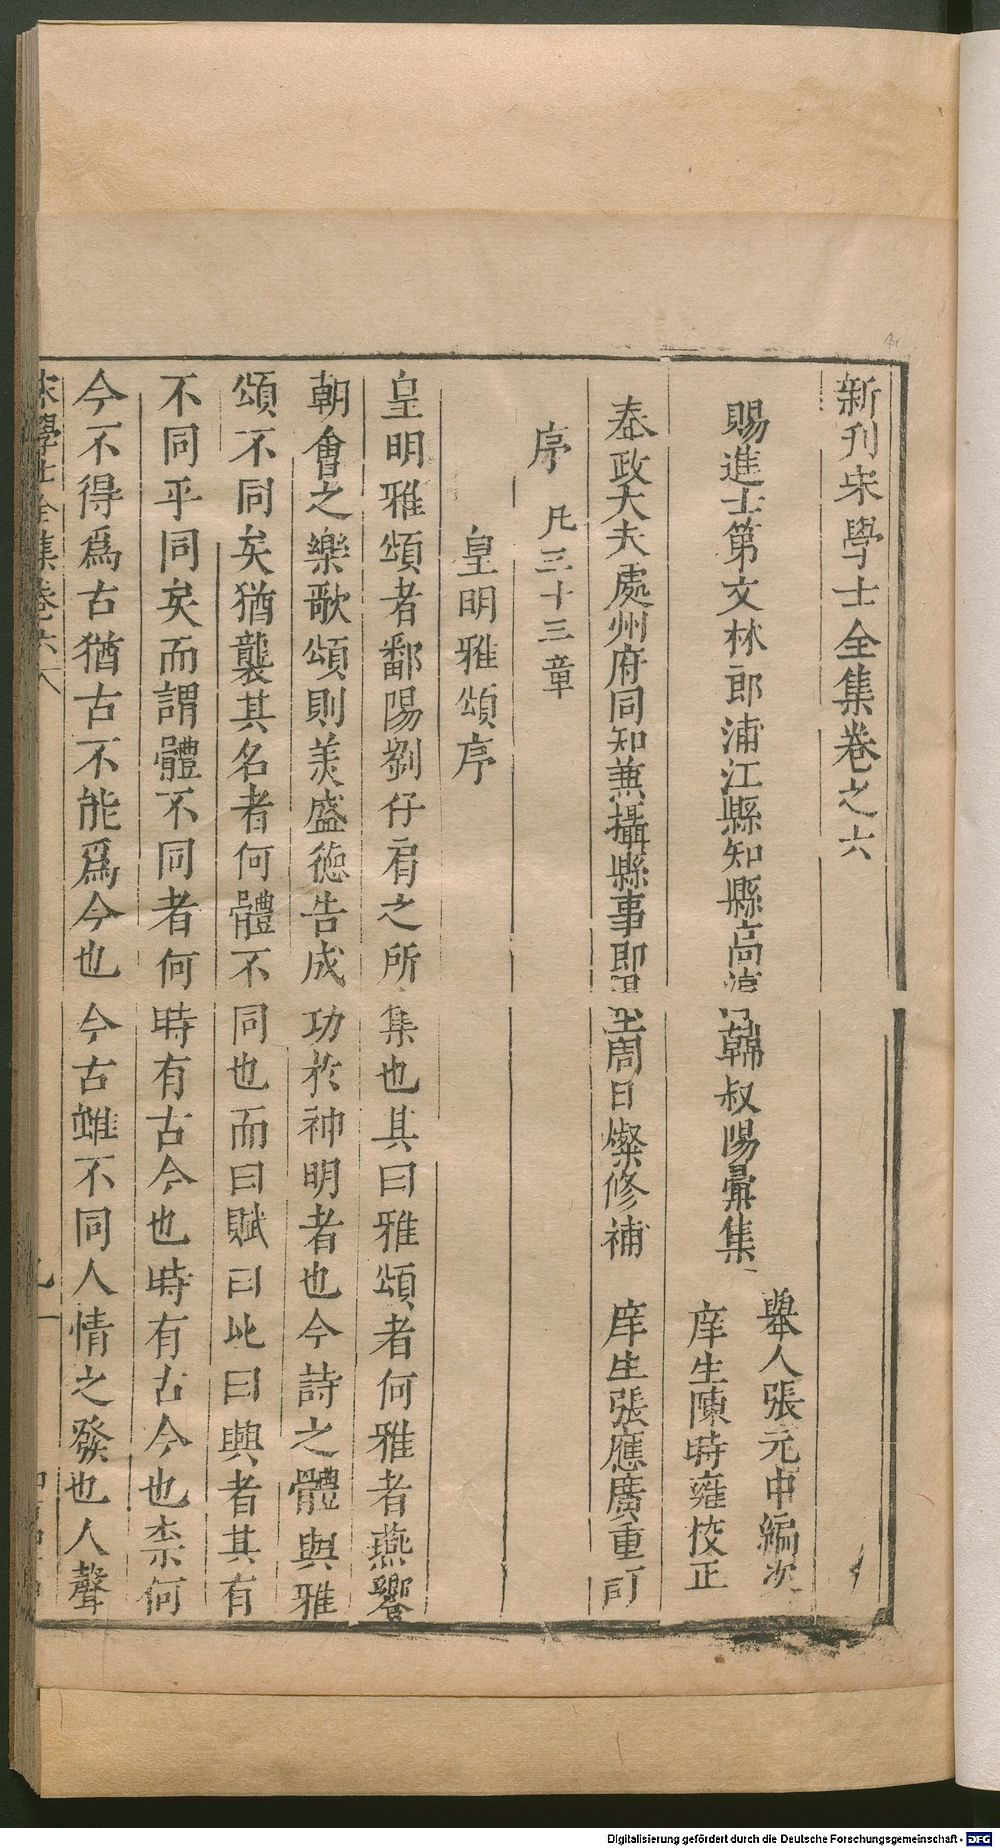 新刊宋學士全集卷之六
賜進士第文林郎浦江縣知縣高淳韓叔陽彙集
舉人張元中編次
庠生陳時雍校正
奉政大夫處州府同知兼攝縣事即墨周日燦修補
庠生張應廣重訂
序 凡三十三章
皇明雅頌序
皇明雅頌者鄱陽劉仔肩之所集也其曰雅頌者何雅者燕饗
朝會之樂歌頌則美盛德告成功於神明者也今詩之體與雅
頌不同矣猶襲其名者何體不同也而曰賦曰比曰興者其有
不同乎同矣而謂體不同者何時有古今也時有古今也柰何
今不得爲古猶古不能爲今也今古雖不同人情之發也人聲
宋學士全集卷六
Digitalisierung gefördert durch die Deutsche Forschungsgemeinschaft - DFG